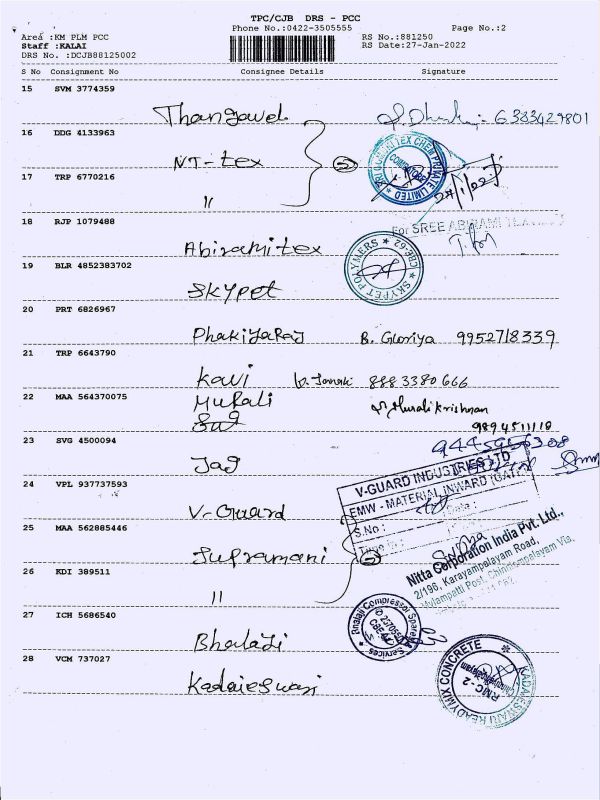 TPC/CJB DRS - PCC
Phone No.:0422-3505555
Page No.:2
Area :KM PLM PCC
RS No.:881250
Staff :KALAI
RS Date:27-Jan-2022
DRS No. :DCJB88125002
S No Consignment No Consignee Details Signature
15 SVM 3774359
Thangavel 6383429801
16 DDG 4133963
NT-tex
17 TRP 6770216
"
18 RJP 1079488
For SREE ABIRAMI TEX
Abiramitex
19 BLR 4852383702
SKYPET POLYMERS ★ CBE-62 ★
SKYPet
20 PRT 6826967
Phakiyaraj B. Gloriya 9952718339
21 TRP 6643790
Kavi 8883380666
22 MAA 564370075
Murali Murali Krishnan
9894511118
23 SVG 4500094
Jag
V-GUARD INDUSTRIES LTD
24 VPL 937737593
EMW - MATERIAL INWARD (GATE)
V-Guard
S.No : Date :
25 MAA 562885446
Nitta Corporation India Pvt. Ltd.,
2/196, Karayampalayam Road,
Mylampatti Post, Chinniampalayam Via,
Supramani
26 KDI 389511
"
27 ICH 5686540
Bhalaji
28 VCM 737027
KADAIESWARI READYMIX CONCRETE
RMC-2
Kadaieswari